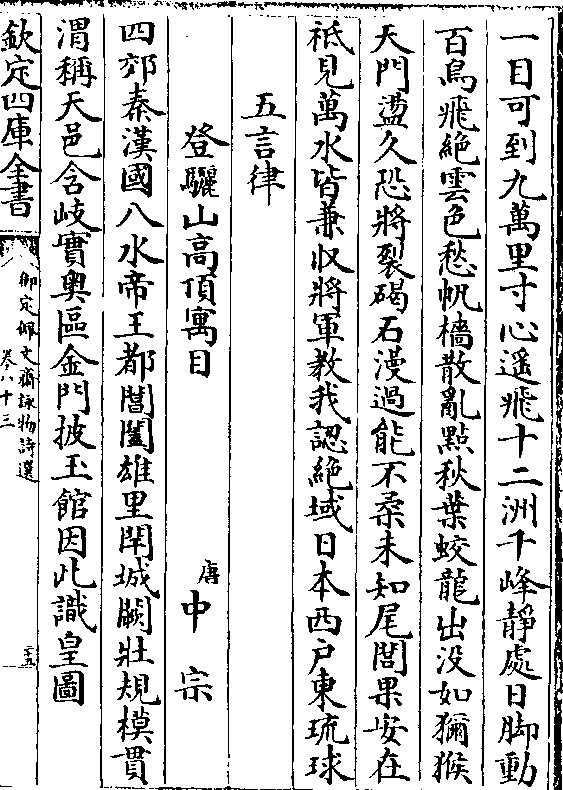 一目可到九萬里寸心遥飛十二洲千峰靜處日脚動
百鳥飛絶雲色愁帆檣散亂㸃秋葉蛟龍出没如獼猴
天門盪久恐將裂碣石漫過能不柔未知尾閭果安在
祗見萬水皆兼収將軍教我認絶域日本西户東琉球
五言律
登驪山高頂寓目
唐中宗
四郊秦漢國八水帝王都閶闔雄里閈城闕壯規模貫
渭稱天邑含岐實奥區金門披玉館因此識皇圖
欽定四庫全書
御定佩文齋詠物詩選
卷八十三
二十五